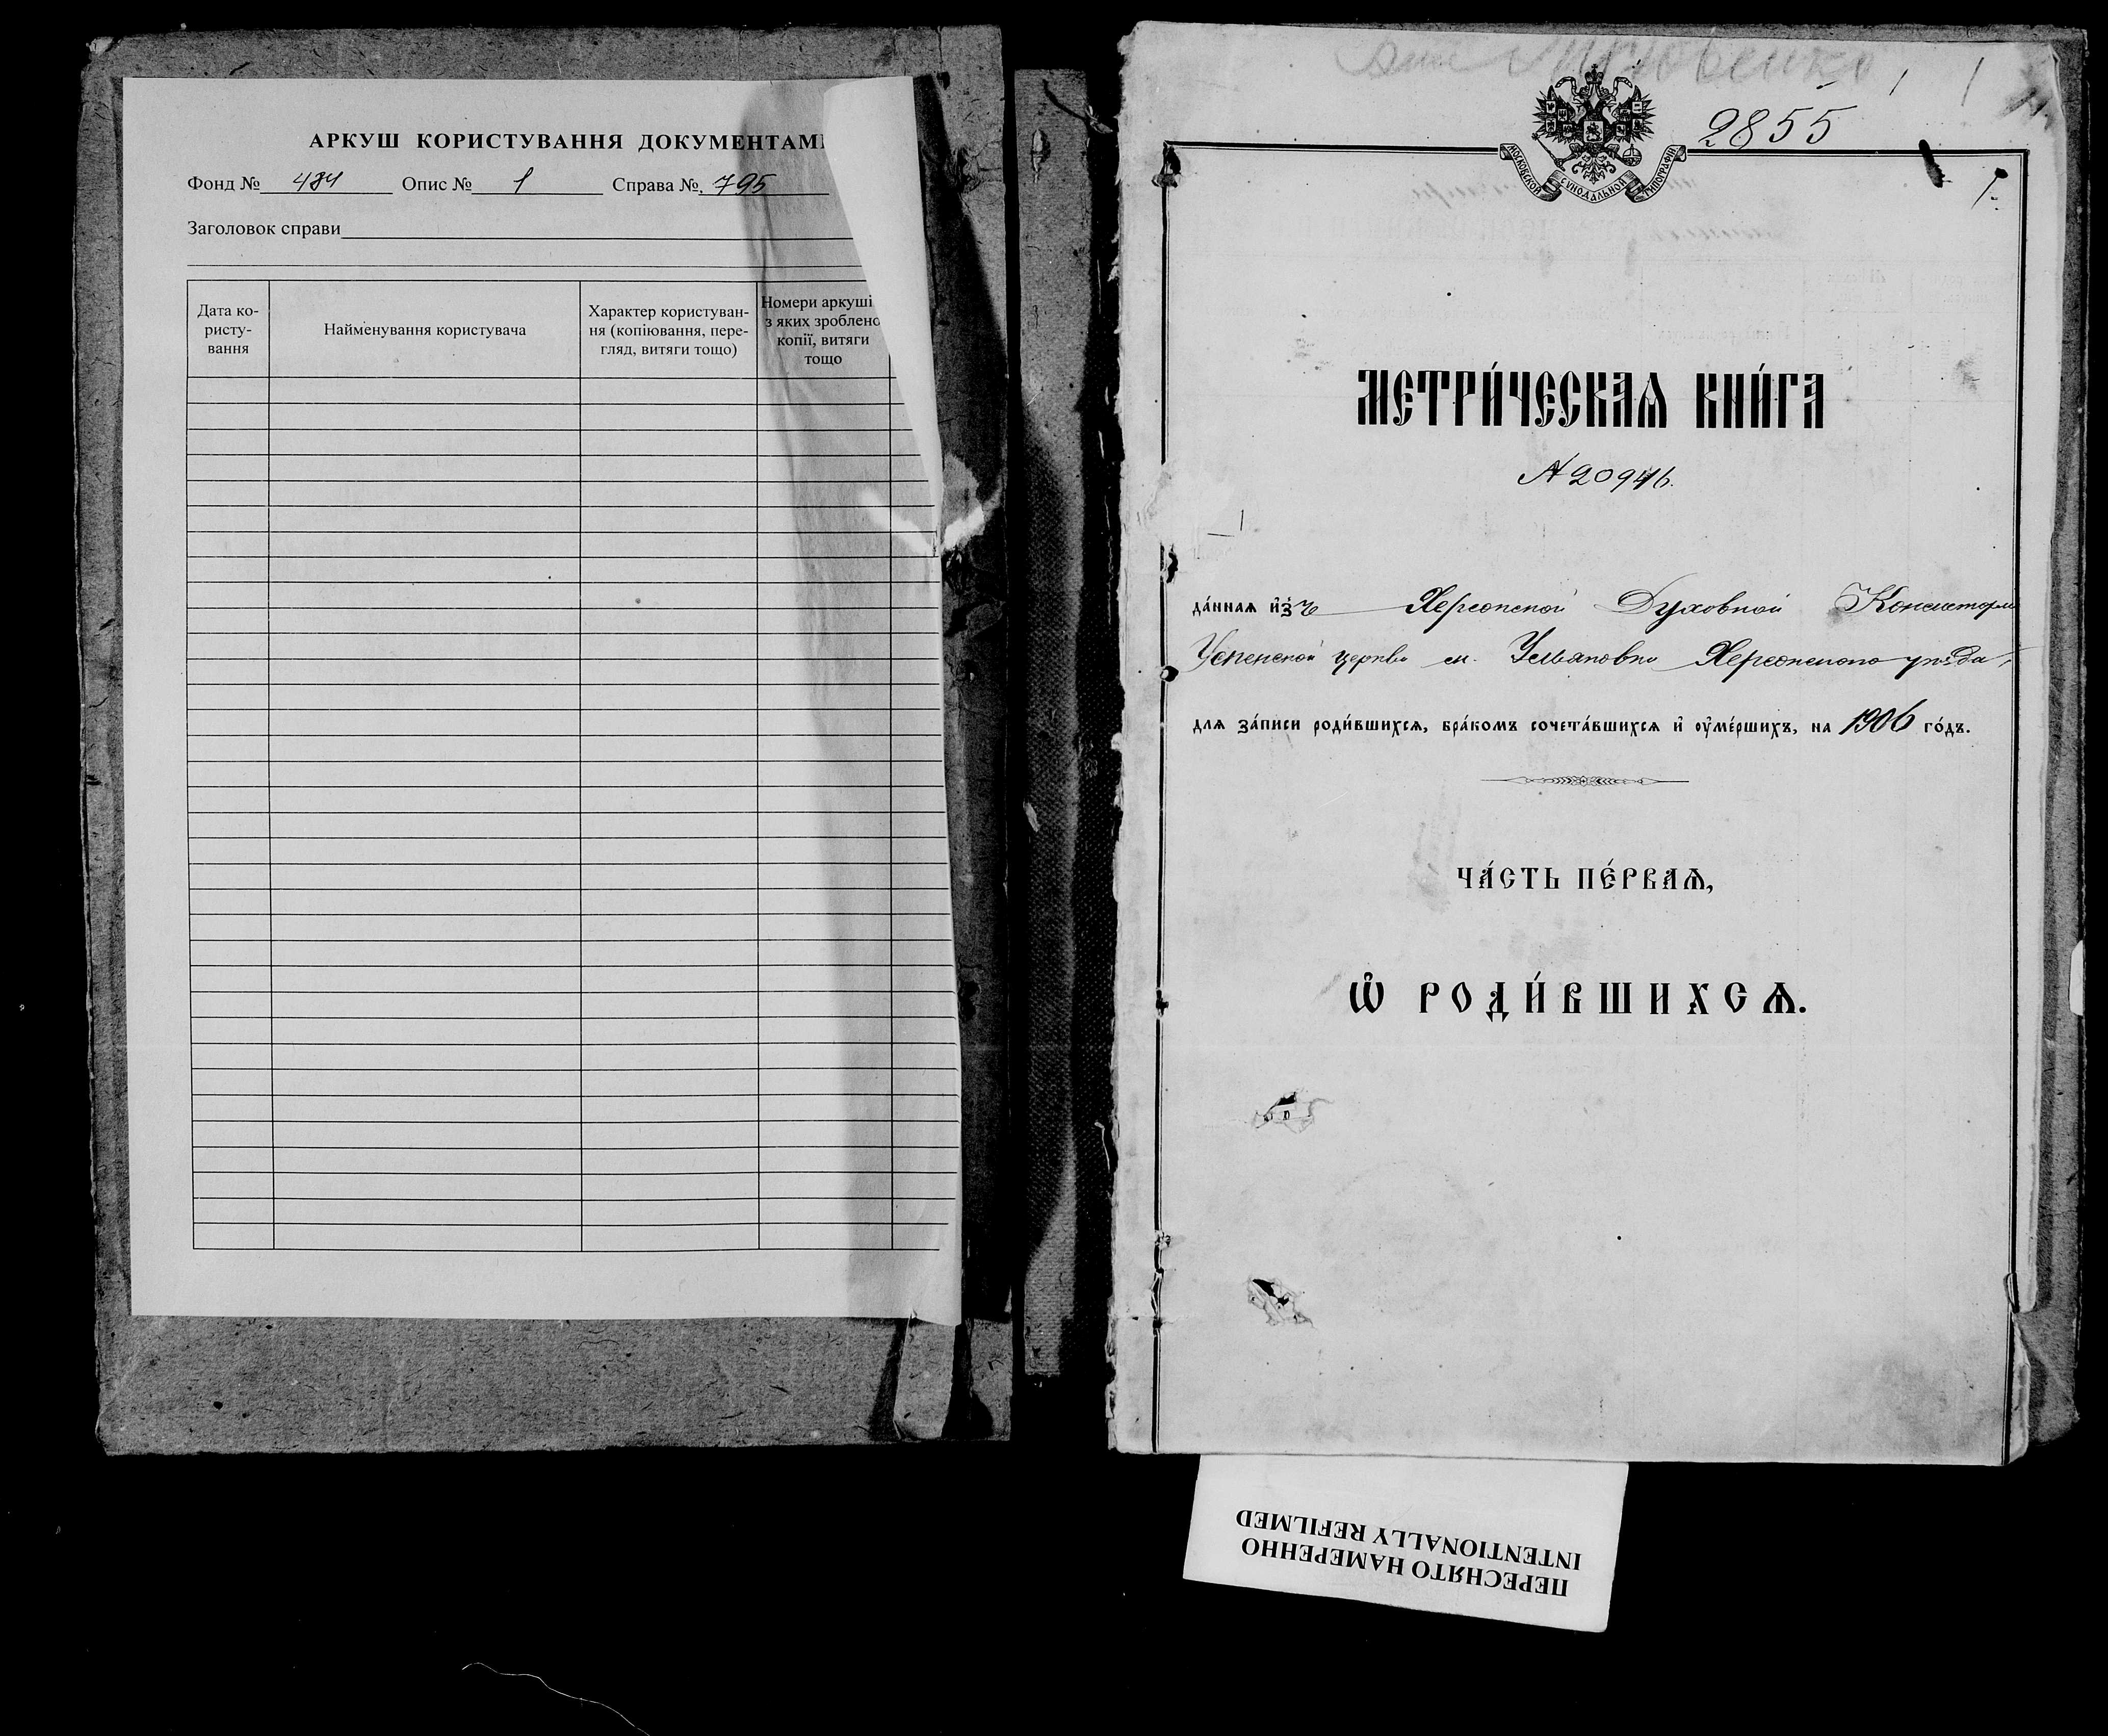 АРКУШ КОРИСТУВАННЯ ДОКУМЕНТАМ
Фонд № 484 Опис № 1 Справа № 795
Заголовок справи
Дата ко-
ристу-
вання
Найменування користувача
Характер користуван-
ня (копіювання, пере-
гляд, витяги тощо)
Номери аркуші
з яких зроблено
копії, витяги
тощо
2855
МОСКОВСКОЙ СѴНОДАЛЬНОЙ ТИПОГРАФІИ
МЕТРИ́ЧЕСКАѦ КНИ́ГА
№ 20946.
да́нная и҆зъ Херсонской Духовной Консисторіи
Успенской церкви с. Ульяновки Херсонскаго уѣзда,
для за́писи роди́вшихсѧ, бра́комъ сочета́вшихсѧ и҆ оу҆ме́ршихъ, на 1906 го́дъ.
ЧА́СТЬ ПЕ́РВАѦ,
Ѡ҆ РОДИ́ВШИХСѦ.
ПЕРЕСНЯТО НАМЕРЕННО
INTENTIONALLY REFILMED